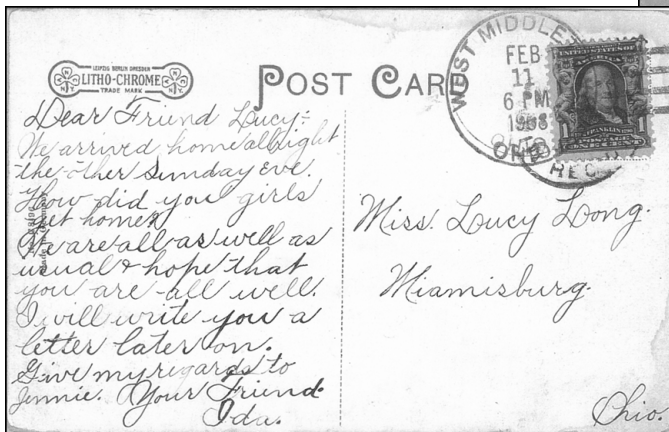 LEIPZIG BERLIN DRESDEN
LITHO-CHROME
TRADE MARK
POST CARD
WEST MIDDLET
FEB
11
6 PM
1908
OHIO
REC
UNITED STATES OF AMERICA
FRANKLIN
POSTAGE
ONE CENT
Dear Friend Lucy:-
We arrived home allright
the other Sunday Eve.
How did you girls
get home?
We are all as well as
usual & hope that
you are all well.
I will write you a
letter later on.
Give my regards to
Jennie. Your Friend
Ida.
Miss. Lucy Long.
Miamisburg.
Ohio.